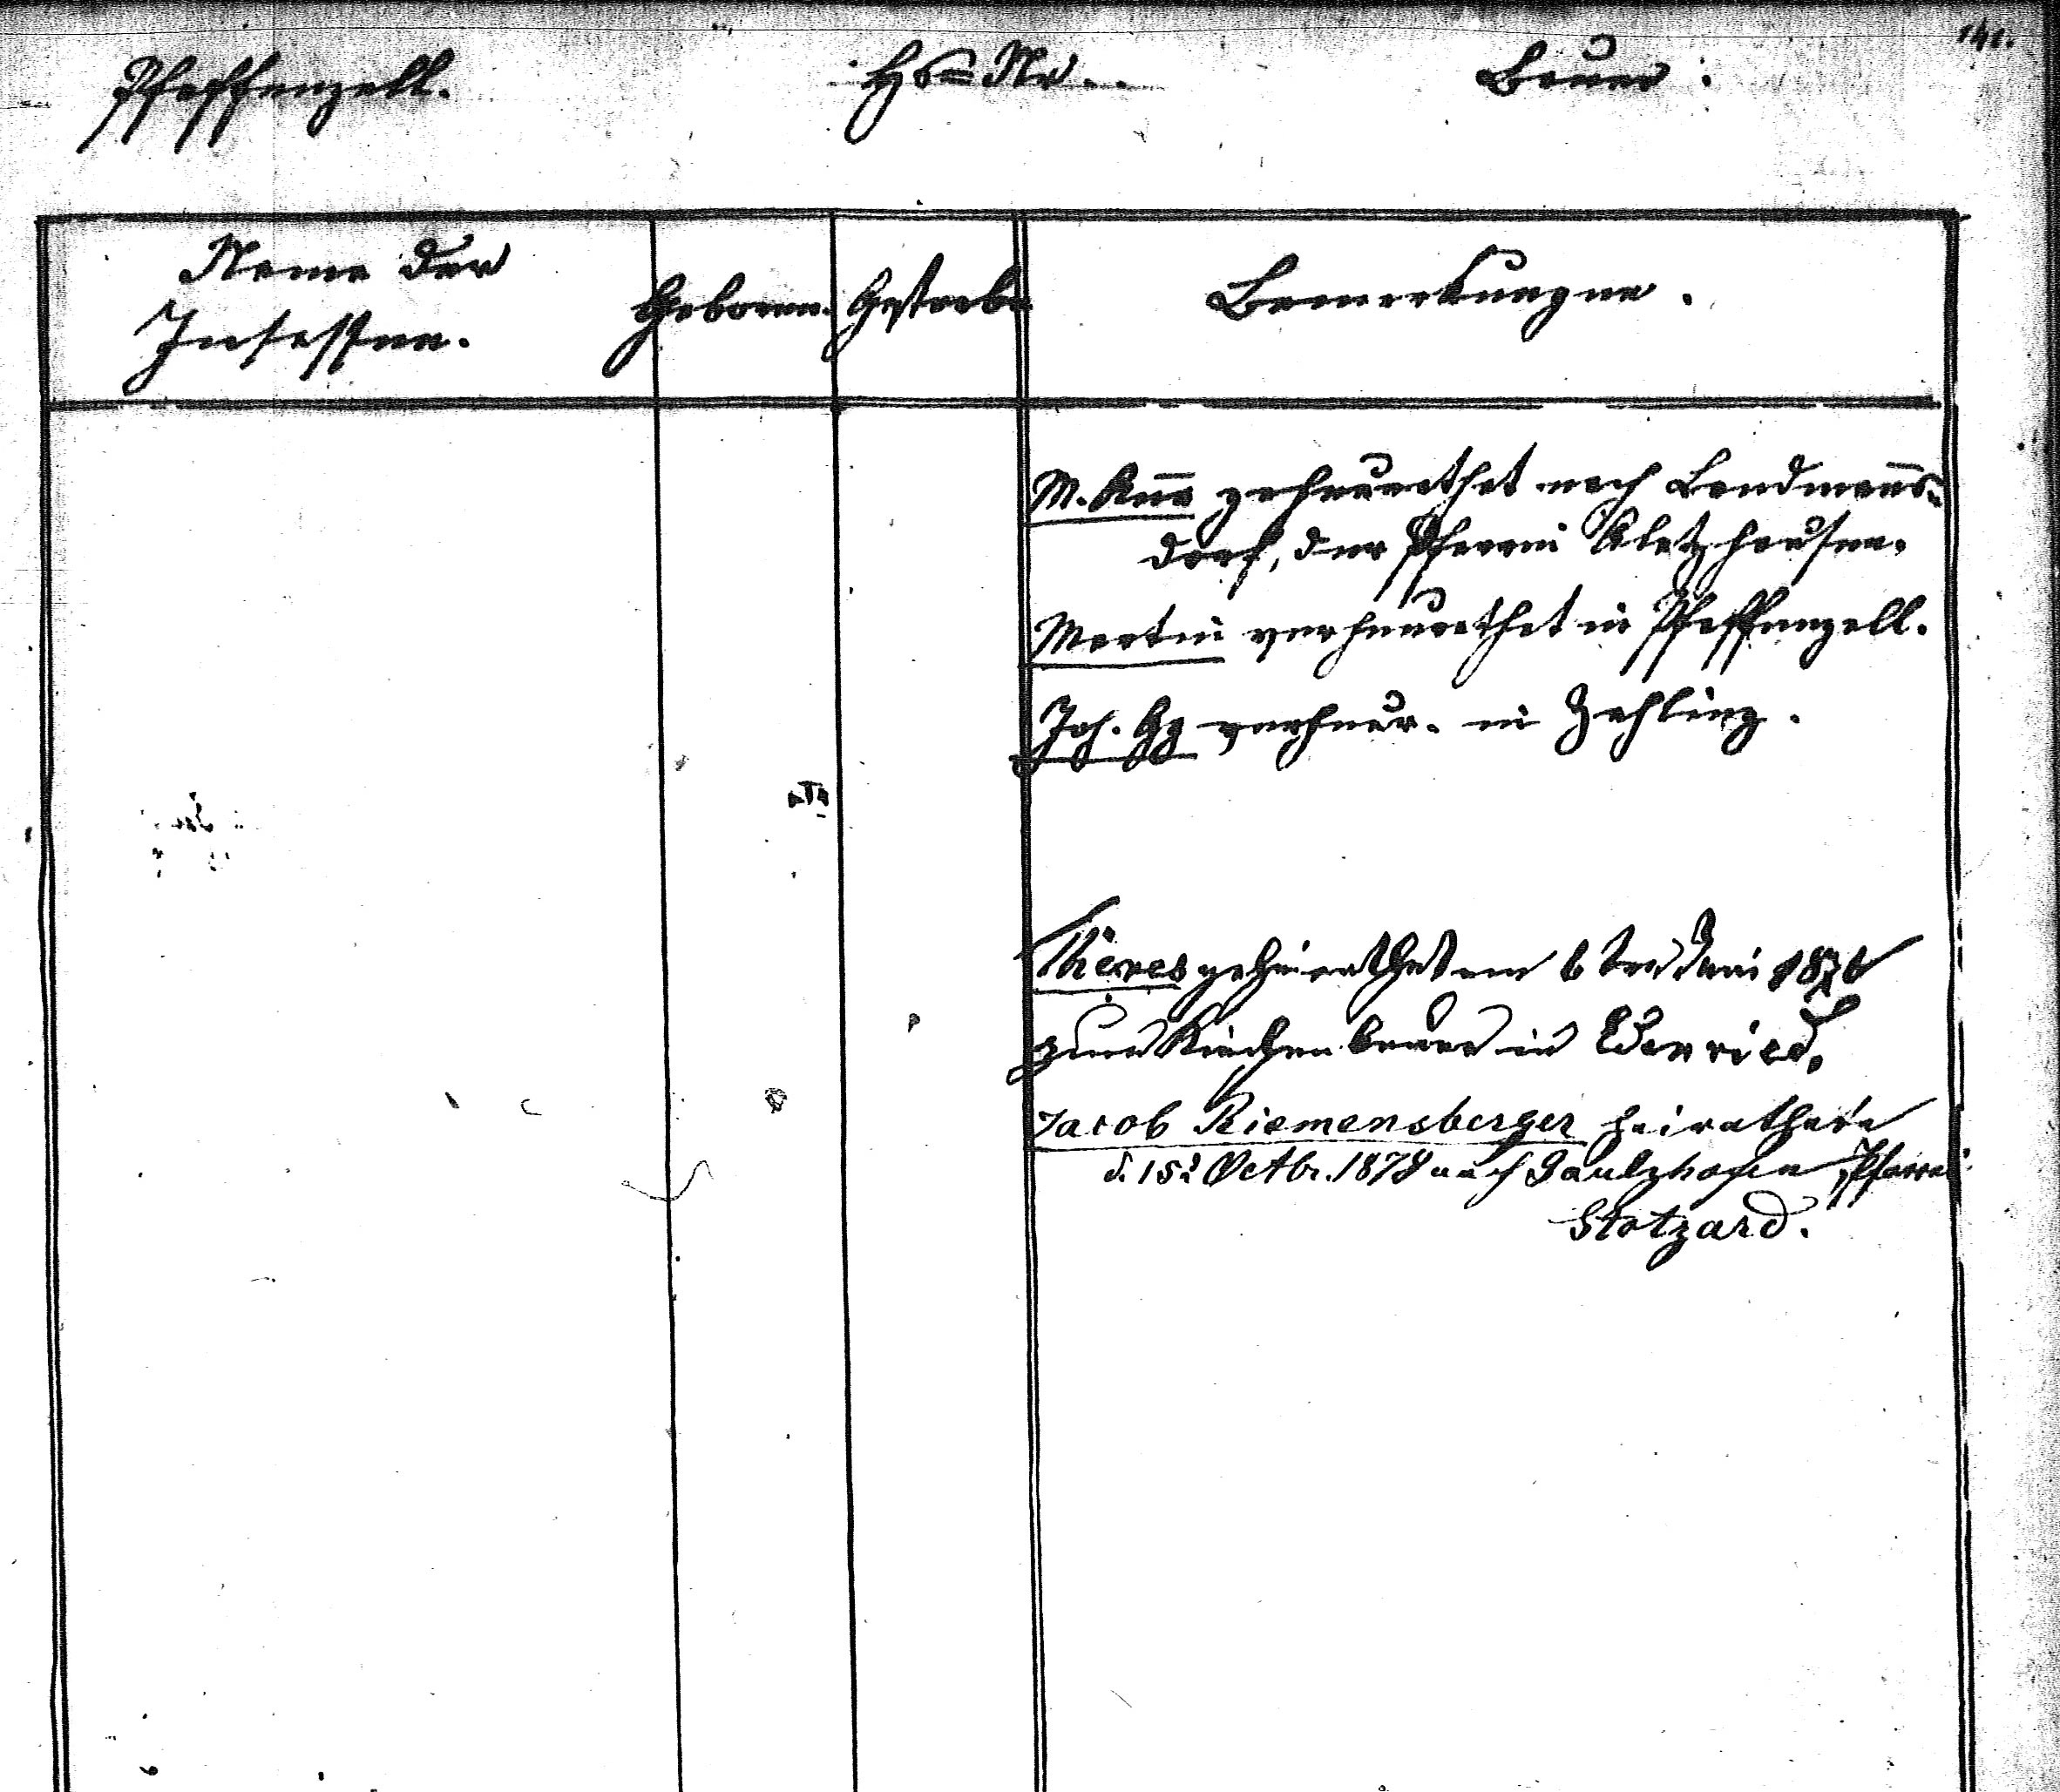 141.
Pfaffenzell. Hs=Nr.. Bauer:
Name der
Insassen.
Geboren. Gestorben
Bemerkungen.
M. Anna geheurathet nach Landmanns=
dorf, der Pfarrei Aletzhausen.
Martin verheurathet in Pfaffenzell.
Joh. Gg verheur. in Zahling.
Theres geheirathet am 6ten Juni 1876
zum Kirchenbauer in Edenried.
Jacob Riemensberger heirathete
d. 15t Octbr. 1878 nach Gaulzhofen Pfarrei
Stotzard.